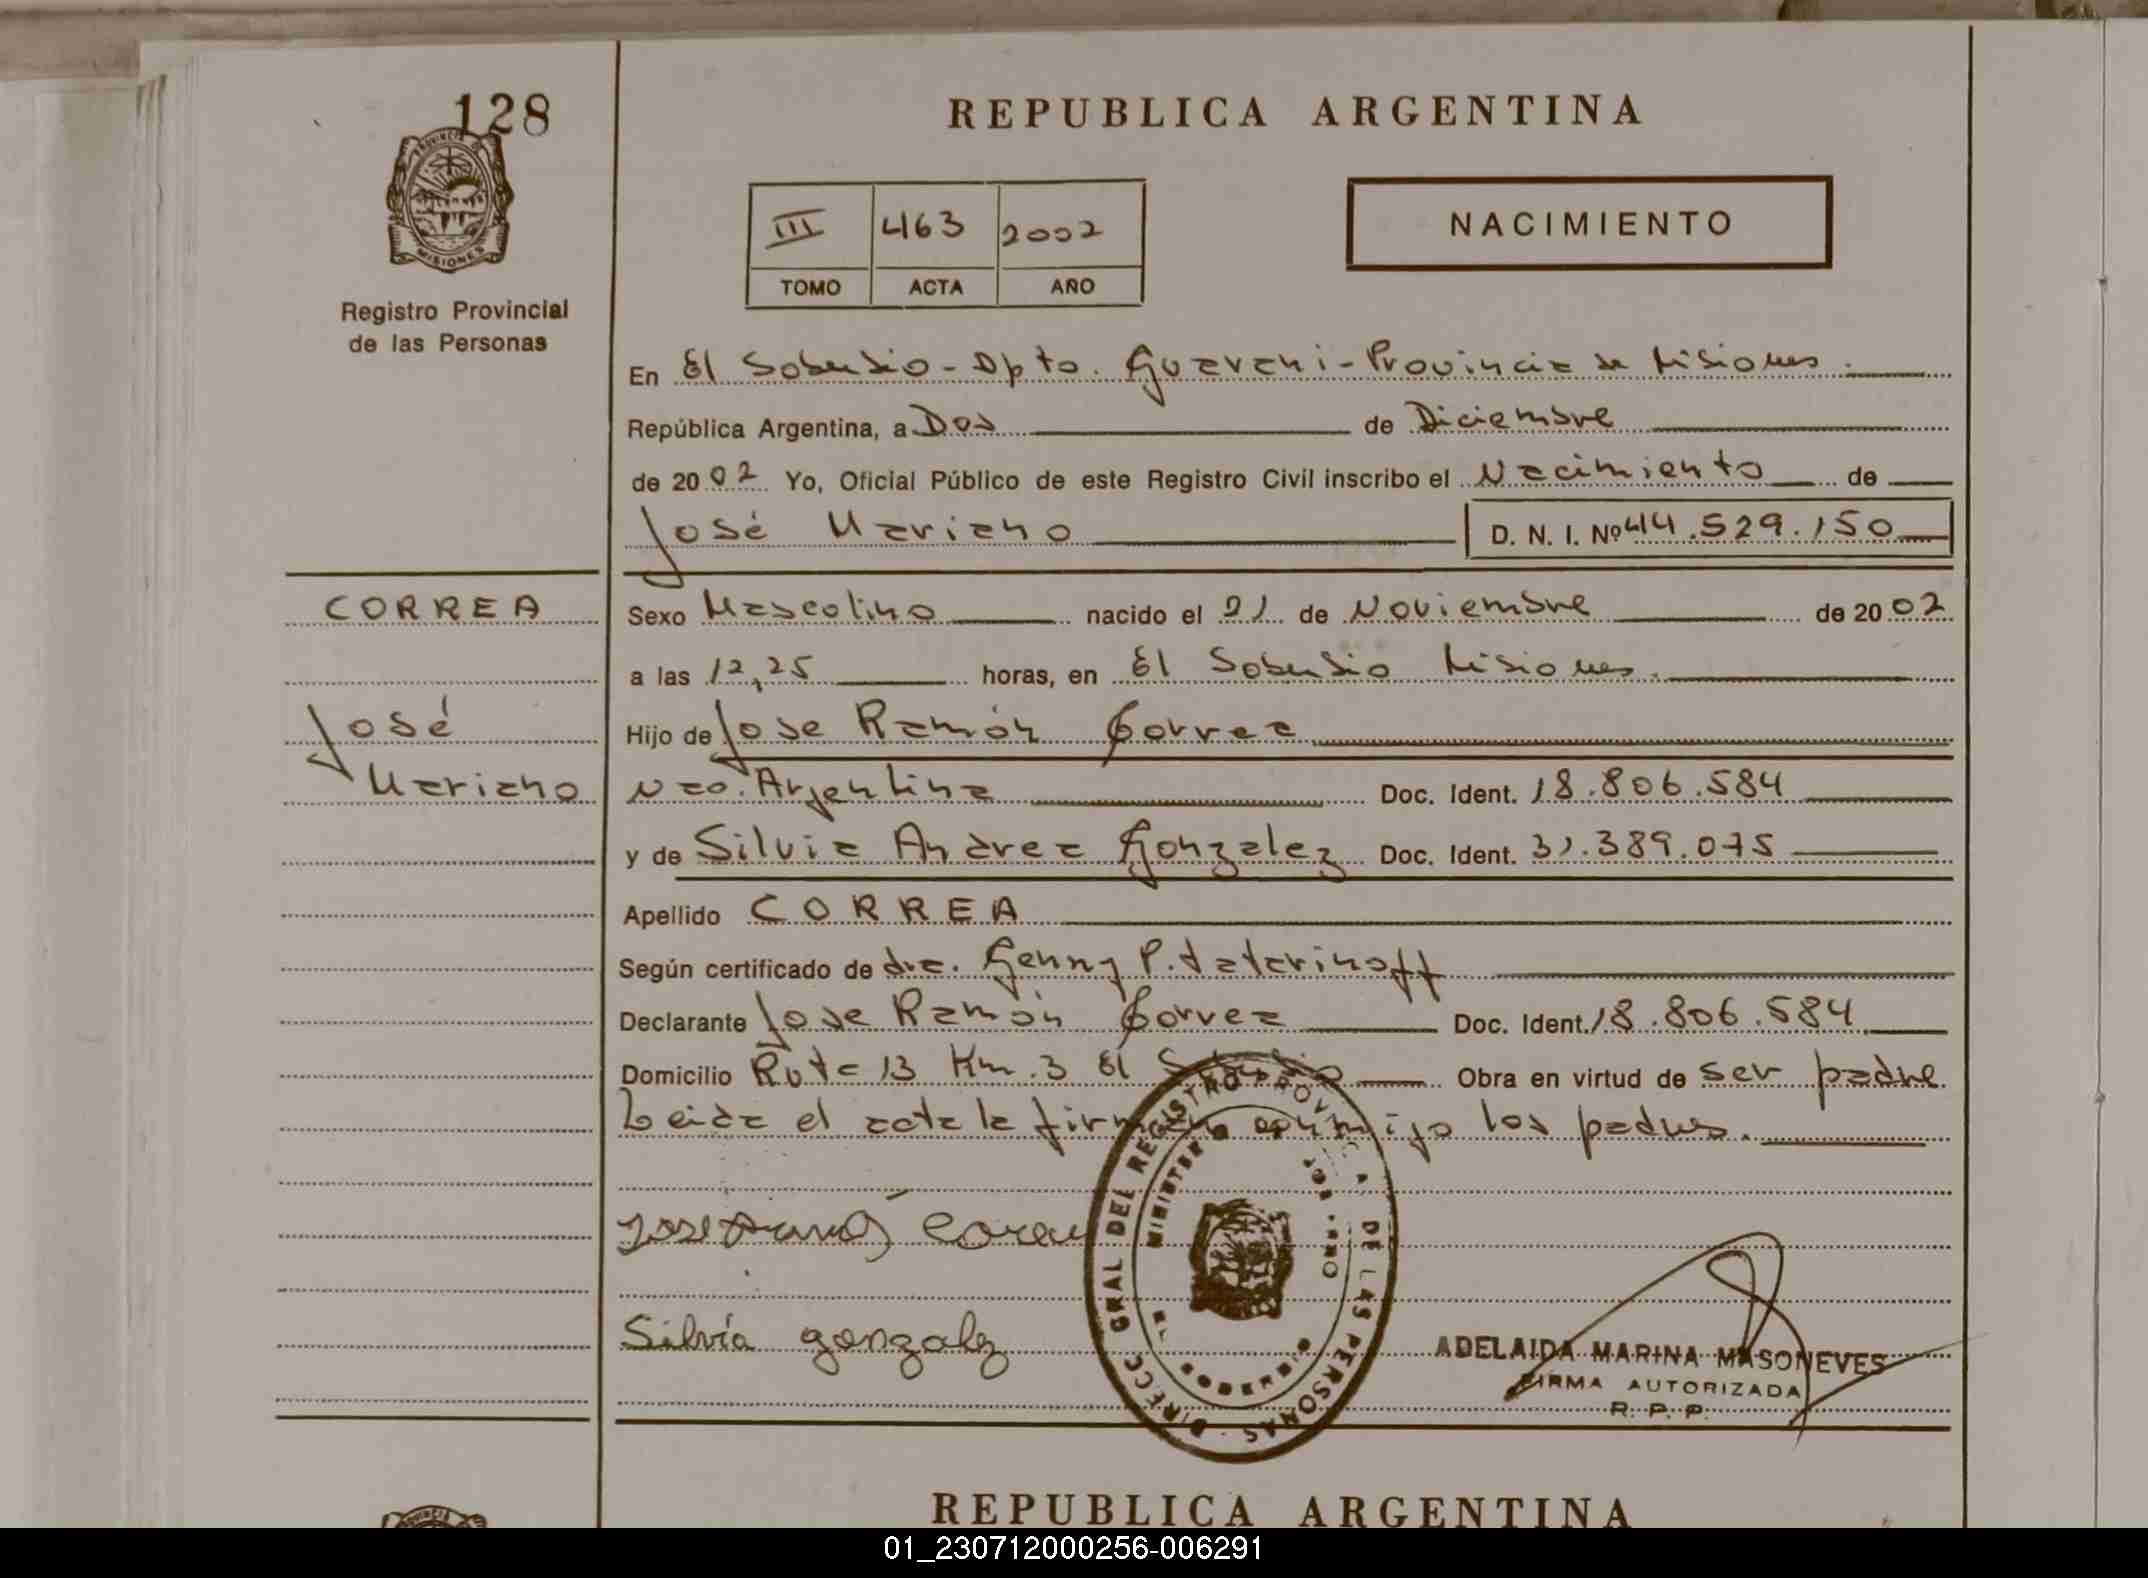 128
REPUBLICA ARGENTINA
III 463 2002
TOMO ACTA AÑO
NACIMIENTO
PROVINCIA DE
MISIONES
Registro Provincial
de las Personas
En El Soberbio - Dpto. Guarani - Provincia de Misiones.
República Argentina, a Dos de Diciembre
de 2002 Yo, Oficial Público de este Registro Civil inscribo el Nacimiento de
José Mariano D. N. I. Nº 44.529.150
CORREA
Sexo Masculino nacido el 21 de Noviembre de 2002
a las 12,25 horas, en El Soberbio Misiones.
José
Hijo de Jose Ramón Correa
Mariano
Nac. Argentina Doc. Ident. 18.806.584
y de Silvia Andrea Gonzalez Doc. Ident. 31.389.075
Apellido CORREA
Según certificado de dra. Genny P.
Declarante Jose Ramón Correa Doc. Ident. 18.806.584
Domicilio Ruta 13 Km. 3 El Soberbio Obra en virtud de ser padre
Leida el acta la firman conmigo los padres.
Jose Ramón Correa
Silvia gonzalez
DIRECC GRAL DEL REGISTRO PROVINCIAL DE LAS PERSONAS
ADELAIDA MARINA MASONEVES
FIRMA AUTORIZADA
R. P. P.
REPUBLICA ARGENTINA
01_230712000256-006291